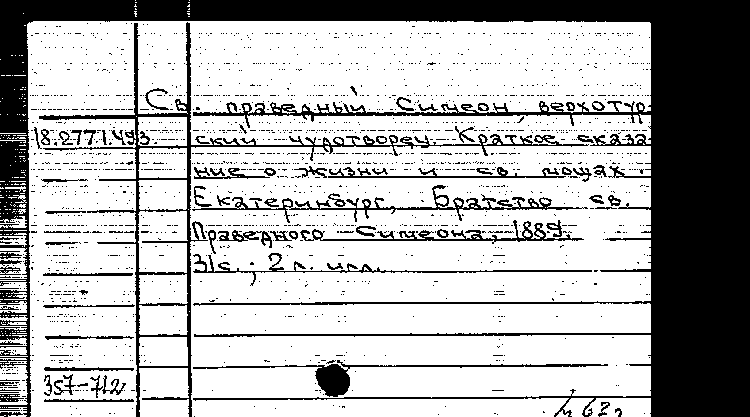 Св. праведный Симеон, верхотур-
18.277.1.493. ский чудотворец. Краткое сказа-
ние о жизни и св. мощах.
Екатеринбург, Братство св.
Праведного Симеона, 1889.
31с.; 2 л. илл.
357-712